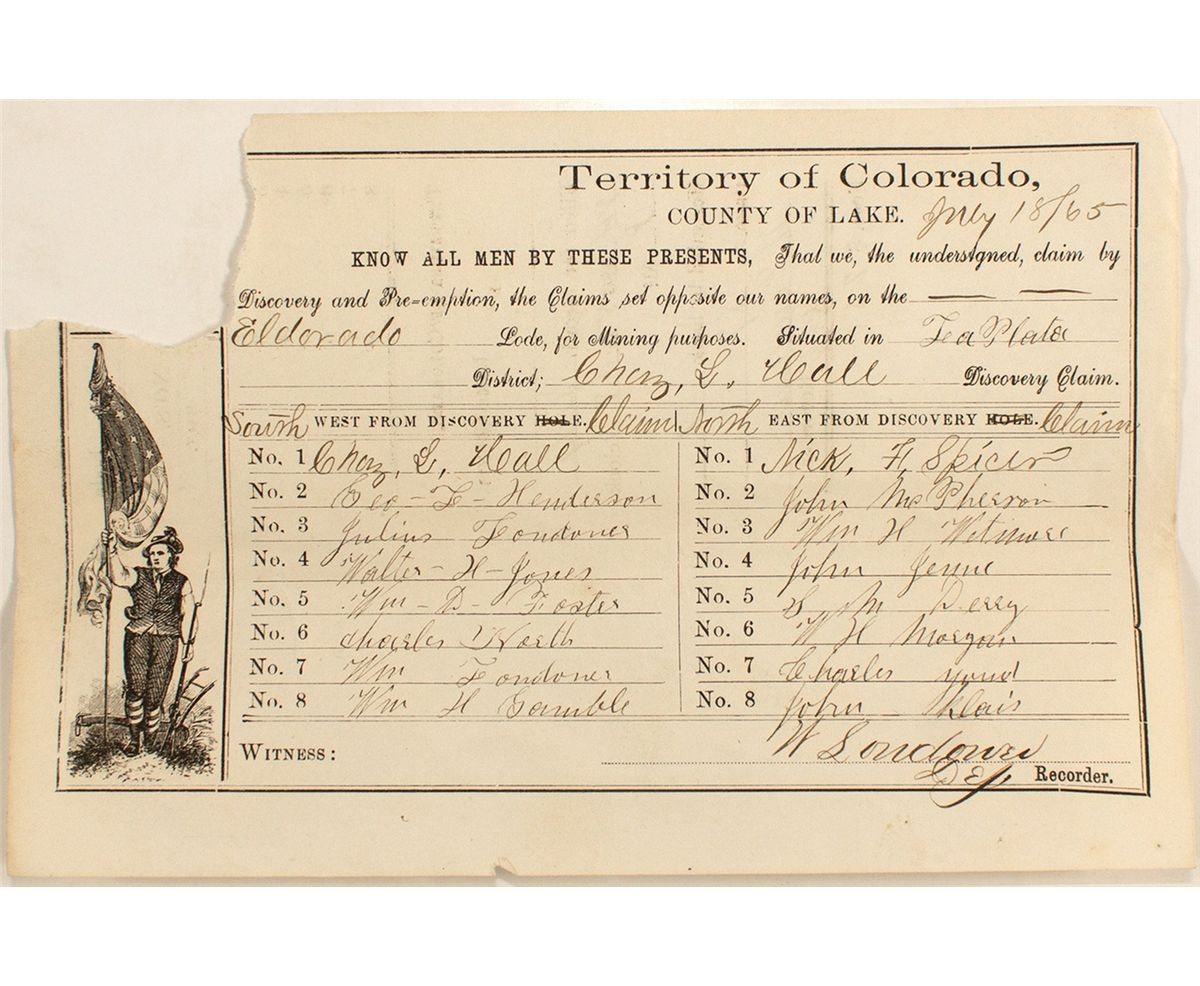 Territory of Colorado,
COUNTY OF LAKE. July 18/65
KNOW ALL MEN BY THESE PRESENTS, That we, the undersigned, claim by
Discovery and Pre-emption, the Claims set opposite our names, on the
Eldorado Lode, for Mining purposes. Situated in Plata
District; Chaz, L, Hall Discovery Claim.
South WEST FROM DISCOVERY HOLE. Claim North EAST FROM DISCOVERY HOLE. Claim
No. 1 Chaz, L, Hall No. 1 Nick, H, Spicer
No. 2 Geo - L - Henderson No. 2 John McPherson
No. 3 Julius Londoner No. 3 Wm H Witmore
No. 4 Walter - H - Jones No. 4 John Jenne
No. 5 Wm - D - Foster No. 5 S, M Derry
No. 6 Charles North No. 6 W H Morgan
No. 7 Wm Londoner No. 7 Charles
No. 8 Wm H Gamble No. 8 John
WITNESS: W Londoner
Dep Recorder.